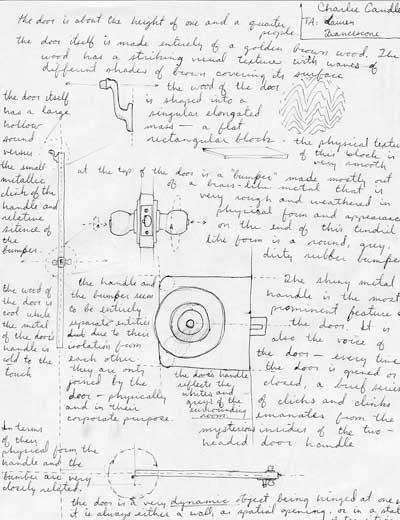 Charlie Candle
TA: Lauren
Zuancescone
the door is about the height of one and a quarter
people.
the door itself is made entirely of a golden brown wood. The
wood has a striking visual texture with waves of
different shades of brown covering its surface
the wood of the door
is shaped into a
singular elongated
mass — a flat
rectangular block.
the physical texture
of this whole is
very smooth
the door itself
has a large
hollow
sound
versus
the small
metallic
click of the
handle and
relative
silence of
the
bumper.
at the top of the door is a "bumper" made mostly out
of a brass-like metal that is
very rough and weathered in
physical form and appearance
on the end of this tendril
like form is a round, grey,
dirty rubber bumper
the wood of
the door is
cool while
the metal
of the door's
handle is
cold to the
touch
the handle and
the bumper seem
to be entirely
separate entities
due to their
isolation from
each other.
they are only
joined by the
door — physically
and in their
corporate purpose
the door's handle
reflects the
whites and
greys of the
surrounding
room.
The shiny metal
handle is the most
prominent feature of
the door. It is
also the voice of
the door — every time
the door is opened or
closed, a brief series
of clicks and clinks
emanates from the
mysterious insides of the two-
headed door handle
In terms
of their
physical form the
handle and the
bumper are very
closely related.
the door is a very dynamic object being hinged at one
it is always either a wall, a spatial opening, or in a